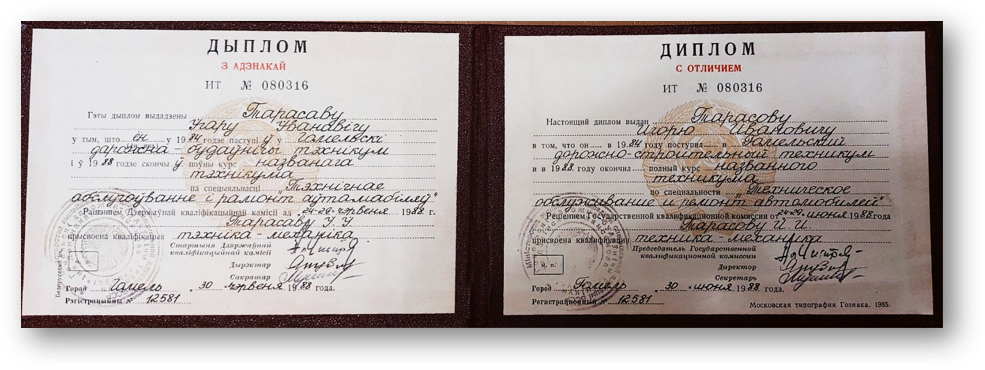 ДЫПЛОМ
З АДЗНАКАЙ
ИТ № 080316
Гэты дыплом выдадзены Тарасаву
Ігару Іванавічу
у тым, што ён у 1984 годзе паступіў у Гомельскі
дарожна-будаўнічы тэхнікум
і ў 1988 годзе скончыў поўны курс названага
тэхнікума
па спецыяльнасці "Тэхнічнае
абслугоўванне і рамонт аўтамабіляў"
Рашэннем Дзяржаўнай кваліфікацыйнай камісіі ад 24-29 чэрвеня 1988 г.
Тарасаву І. І.
прысвоена кваліфікацыя тэхніка-механіка
Старшыня Дзяржаўнай
кваліфікацыйнай камісіі
Дырэктар
Сакратар
Горад Гомель 30 чэрвеня 1988 года.
Рэгістрацыйны № 12581
ДИПЛОМ
С ОТЛИЧИЕМ
ИТ № 080316
Настоящий диплом выдан Тарасову
Игорю Ивановичу
в том, что он в 1984 году поступил в Гомельский
дорожно-строительный техникум
и в 1988 году окончил полный курс названного
техникума
по специальности "Техническое
обслуживание и ремонт автомобилей"
Решением Государственной квалификационной комиссии от 24-29 июня 1988 года
Тарасову И. И.
присвоена квалификация техника-механика
Председатель Государственной
квалификационной комиссии
Директор
Секретарь
М. П.
Город Гомель 30 июня 1988 года.
Регистрационный № 12581
Московская типография Гознака. 1985.